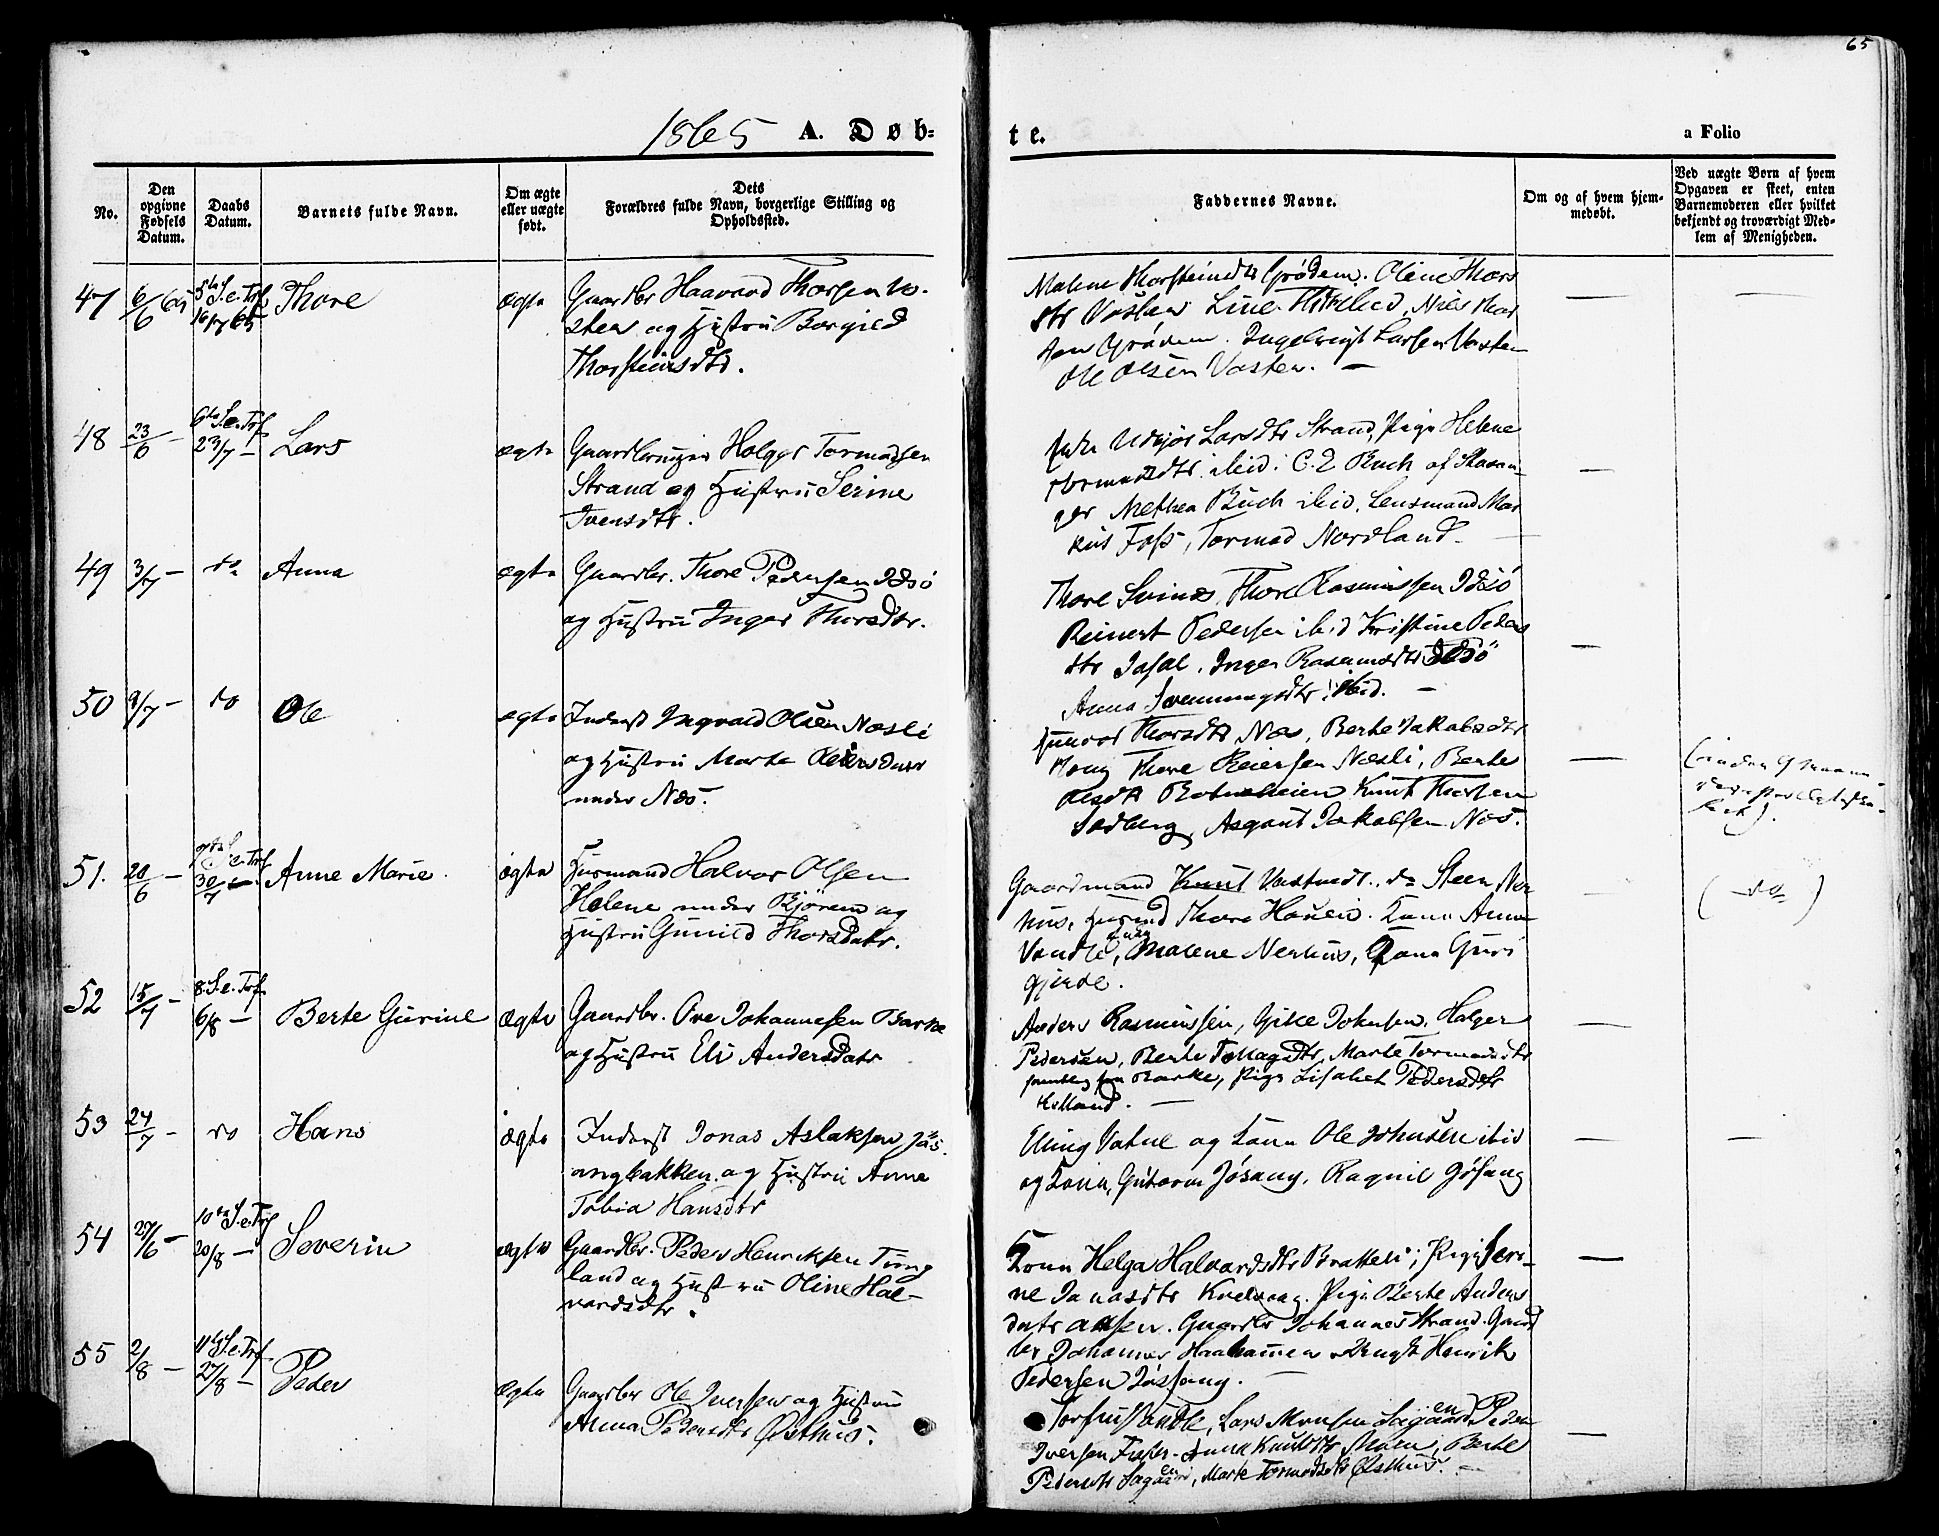 65
1865 A. Døb-
te.
a Folio
No.
Den
opgivne
Fødsels
Datum.
Daabs
Datum.
Barnets fulde Navn.
Om ægte
eller uægte
født.
Dets
Forældres fulde Navn, borgerlige Stilling og
Opholdssted.
Faddernes Navne.
Om og af hvem hjem-
medøbt.
Ved uægte Børn af hvem
Opgaven er skeet, enten
Barnemoderen eller hvilket
bekjendt og troværdigt Med-
lem af Menigheden.
47 6/6 65 5te S. e. Tref 16/7 65 Thore ægte
Gaardbr Haavard Thorsen Vo-
ster og Hustru Borgild
Thorsteinsdtr.
Malene Thorsteinsdtr Grödem. Oline Thors
dtr Voster Line Niels Thor
sen Grödem. Ingebrigt Larsen Voster
Ole Olsen Voster. —
48 23/6 — 6te S. e. Tref 23/7 — Lars ægte
Holger Tormodsen
Strand og Hustru Serine
Iversdtr.
Larsdtr Strand, Pige Helene
Tormodsdtr ibid. C. E Buch af Stavan-
ger Methea Buch ibid, Lensmand Mar
kus Foss, Tormod Nordland —
49 3/7 — do Anna ægte
Gaardbr. Thore Pedersen Idsö
og Hustru Inger Thorsdtr.
Thore Svines, Thore Rasmussen Idsö
Reinert Pedersen ibid Kristine Peders
dtr Idsal. Inger Rasmusdtr Idsö
Anna Svenningsdtr ibid. —
50 9/7 — do Ole ægte
Inderst Ingvald Olsen Næsli
og Hustru Marta Reiersdatr
under Næs.
Gunvor Thorsdtr Næs, Berte Jakobsdtr
Thore Reiersen Næsli, Berte
Olsdtr Botneheien Knut Thorsen
Sedberg, Asgaut Jakobsen Næs.
51. 20/6 — 7de S. e. Tref 30/7 — Anne Marie ægte
Husmand Halvor Olsen
Helene under Björem og
Hustru Gunild Thorsdatr.
Gaardmand Knut Vastvedt, do Steen Ner
hus, Husmd Thore Hauen. Kone Anna
Vandle, Enke Malene Nerhus, Kone Guri
Gjerde.
( do )
52 15/7 — 8. S. e. Tref 6/8 — Berte Gurine ægte
Gaardbr. Ove Johannesen Barke
og Hustru Eli Andersdatr
Anders Rasmussen, Johnsen. Holger
Pedersen, Berte Tollagsdtr, Marte Tormodsdtr
samtlig fra Barke, Pige Lisabet Pedersdtr
Helland. —
53 24/7 — do Hans ægte
Inderst Jonas Aslaksen Jös-
angbakken og Hustru Anne
Tobia Hansdtr
Elling Vatne og Kone Ole Johnsen ibid
og Kone, Gutorm Jösang, Ragnil Jösang
54 27/6 — 10de S. e. Tref 20/8 — Severin ægte
Gaardbr. Peder Henriksen Tung
land og Hustru Oline Hal-
vardsdtr.
Kone Helga Halvardsdtr Bratteli; Pige Seri-
ne Jonasdtr Kvelvaag. Pige Berte Anders
datr Gaardbr Johannes Strand. Gaard
br Johannes Ungk Henrik
Pedersen Jössang. —
55 2/8 — 11te S. e. Tref 27/8 — Peder ægte
Gaardbr Ole Iversen og Hustru
Anna Pedersdtr Østhus.
Lars Monsen Sagaard Peder
Iversen Knutsdtr Moen, Berte
Pedersdtr Sagaard, Marte Tormodsdtr Østhus. —